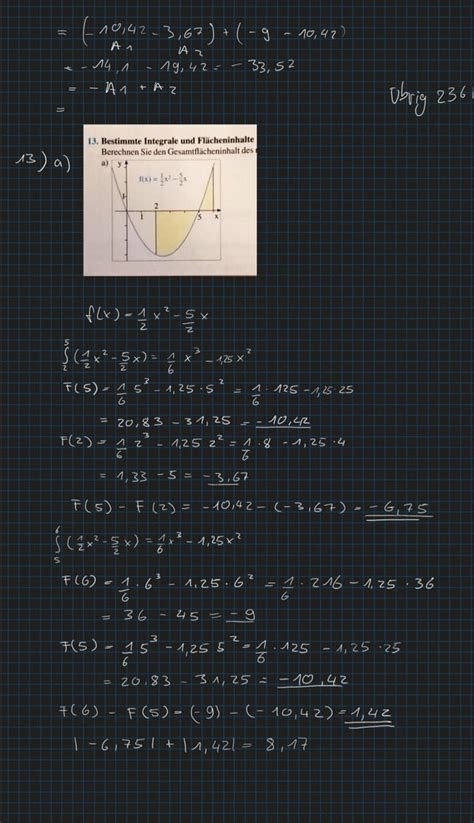 = (-10,42 - 3,67) + (-9 - 10,42)
A1 A2
= -14,1 - 19,42 = -33,52
= -A1 + A2
=
Übrig 236
13) a)
13. Bestimmte Integrale und Flächeninhalte
Berechnen Sie den Gesamtflächeninhalt des
a) y
f(x) = 1/2 x² - 5/2 x
1
2
1 5 x
f(x) = 1/2 x² - 5/2 x
5∫2 (1/2 x² - 5/2 x) = 1/6 x³ - 1,25x²
F(5) = 1/6 5³ - 1,25 · 5² = 1/6 · 125 - 1,25 · 25
= 20,83 - 31,25 = -10,42
F(2) = 1/6 2³ - 1,25 2² = 1/6 · 8 - 1,25 · 4
= 1,33 - 5 = -3,67
F(5) - F(2) = -10,42 - (-3,67) = -6,75
6∫5 (1/2 x² - 5/2 x) = 1/6 x³ - 1,25x²
F(6) = 1/6 · 6³ - 1,25 · 6² = 1/6 · 216 - 1,25 · 36
= 36 - 45 = -9
F(5) = 1/6 5³ - 1,25 5² = 1/6 · 125 - 1,25 · 25
= 20,83 - 31,25 = -10,42
F(6) - F(5) = (-9) - (-10,42) = 1,42
|-6,75| + |1,42| = 8,17